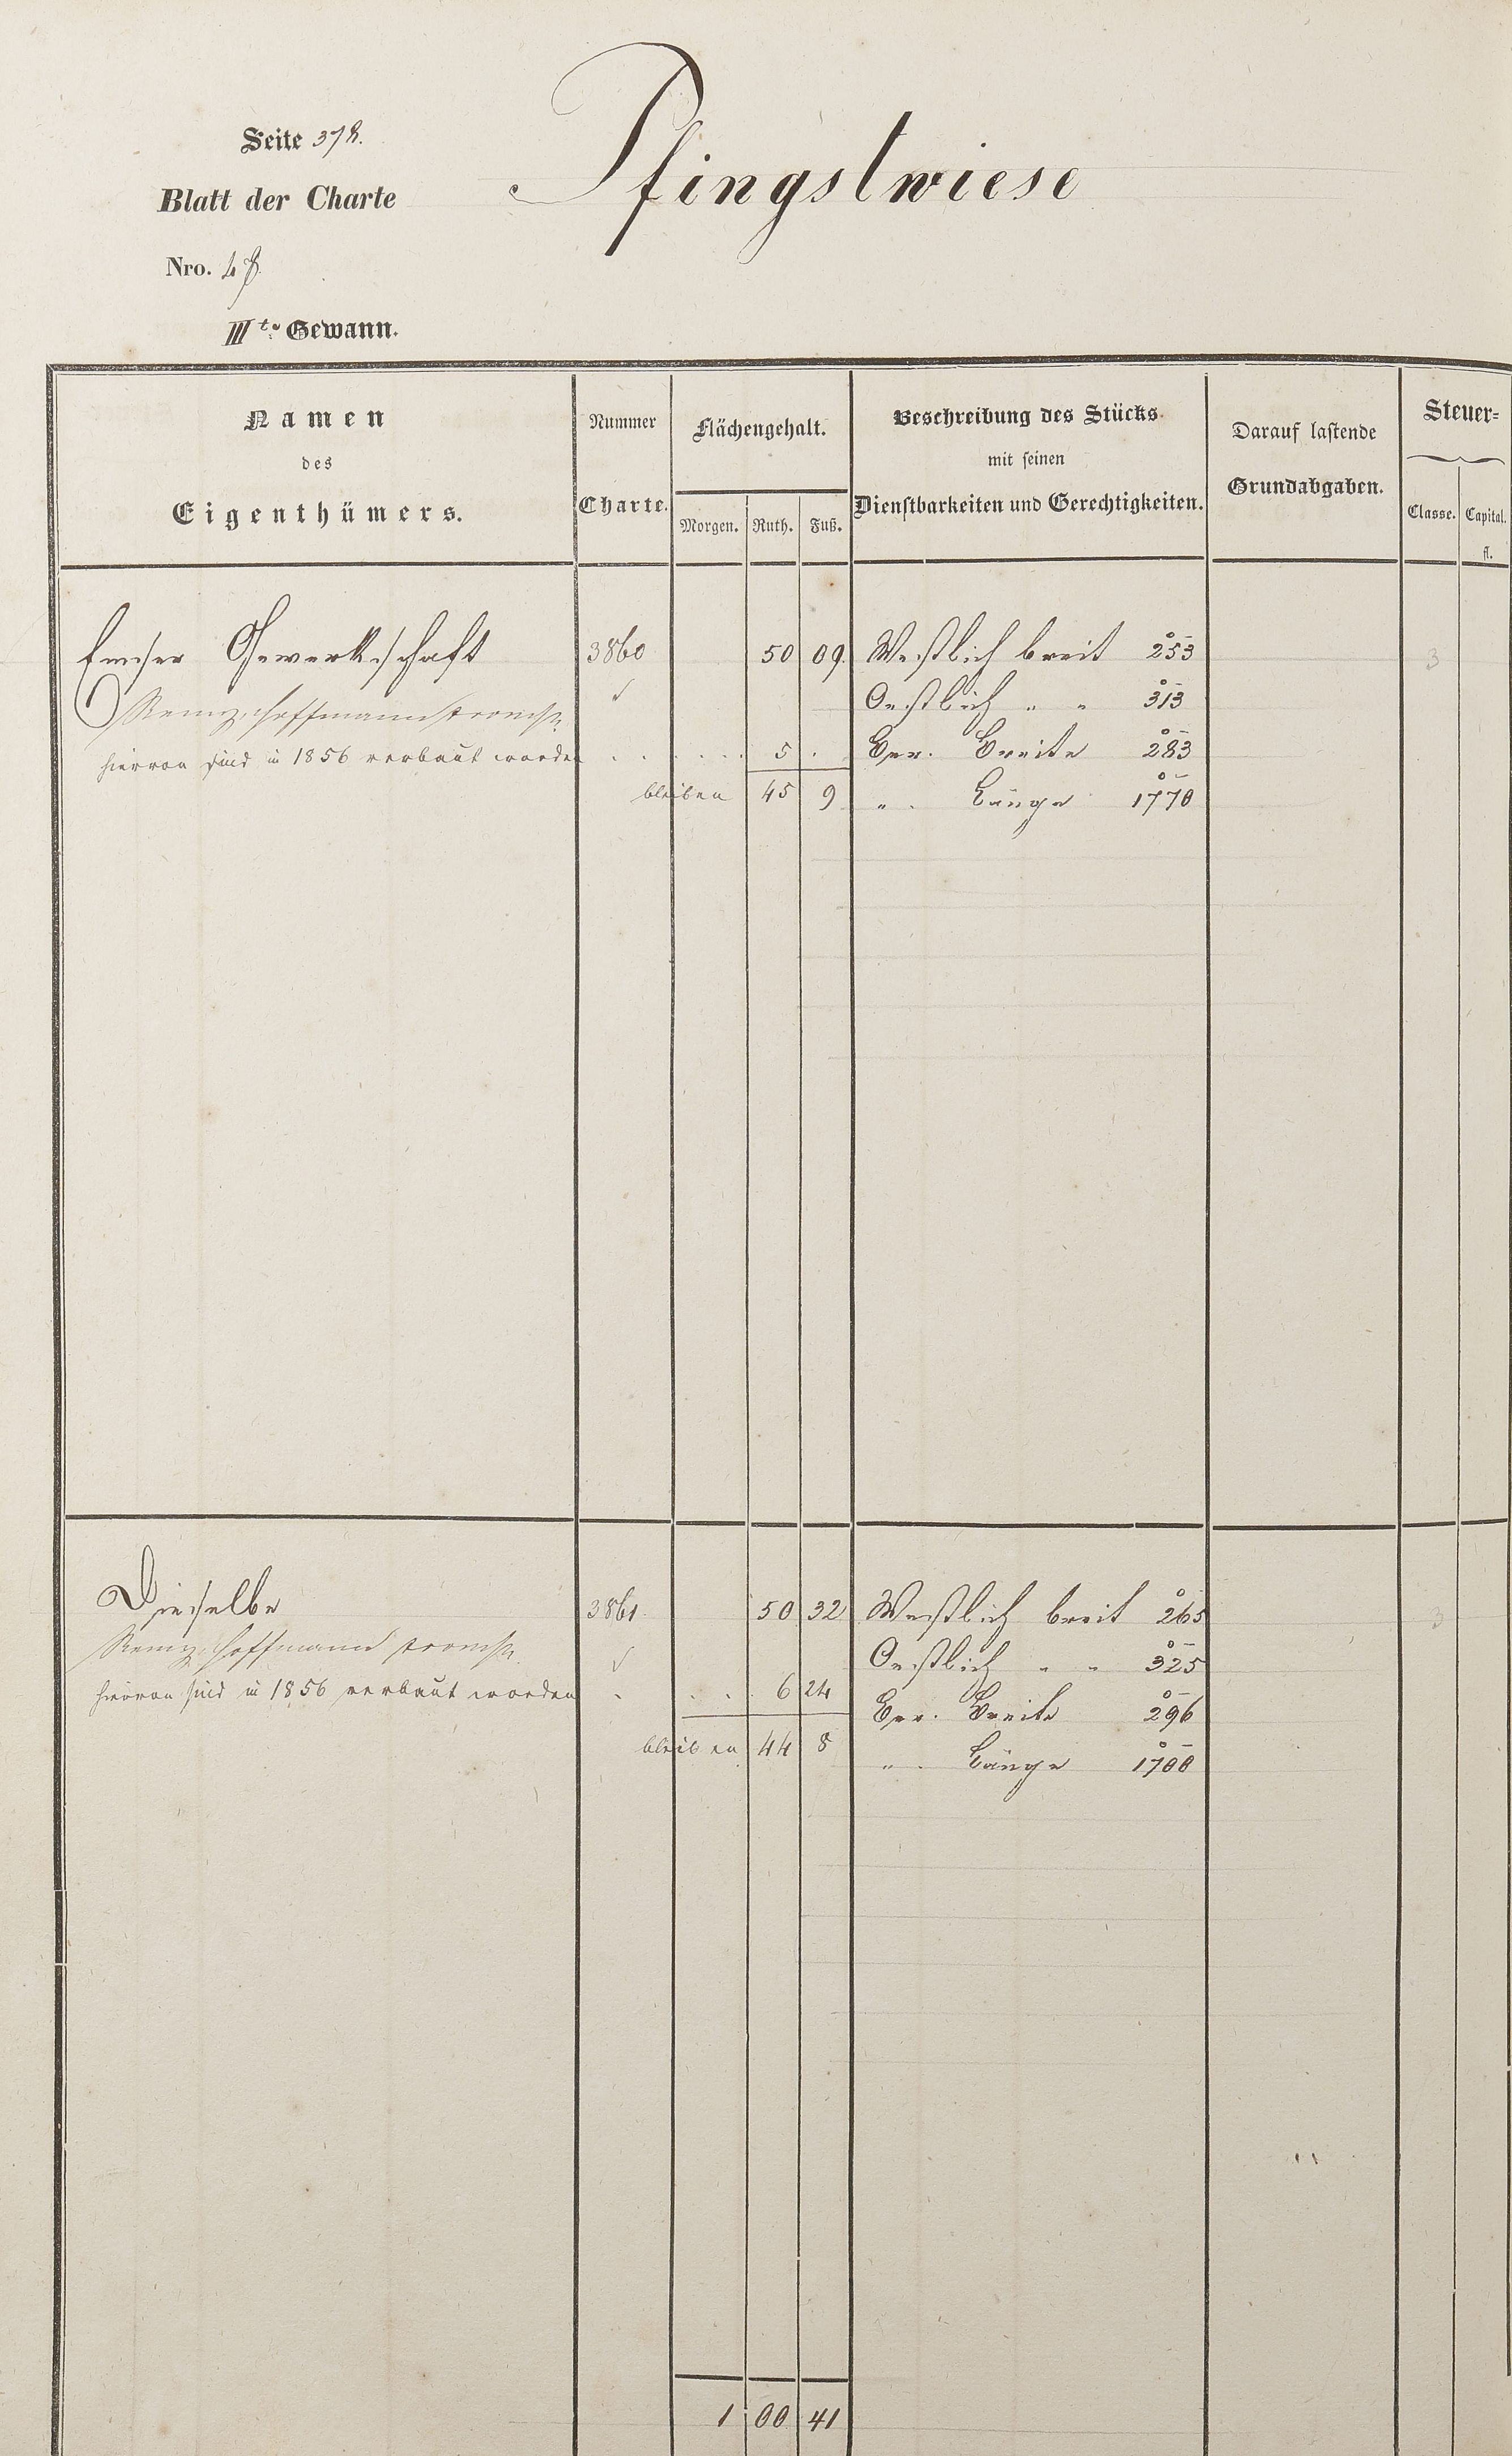 Seite 378.
Pfingstwiese
Blatt der Charte
Nro. 48.
III te Gewann.
Namen
des
Eigenthümers.
Nummer
Charte.
Flächengehalt.
Morgen. Ruth. Fuß.
Beschreibung des Stücks
mit seinen
Dienstbarkeiten und Gerechtigkeiten.
Darauf lastende
Grundabgaben.
Steuer-
Classe. Capital.
fl.
Emser Gewerkschaft 3860 50 09 Westlich breit 253 3
Remy, Hoffmann
Oestlich „ „ 313
hiervon sind in 1856 verbaut worden . . . . . 5 . Ger. Breite 283
bleiben 45 9 „ . Länge 1770
Dieselbe 3861. 50 32 Westlich breit 265 3
Remy, Hoffmann
Oestlich „ „ 325
hiervon sind in 1856 verbaut worden . . . 6 24
Ger. Breite 296
bleiben 44 8
„ . Länge 1700
1 00 41